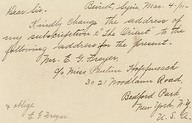 Dear Sir. Beirut, Syria Mar. 4/10
Kindly change the address of
my subscription to The Orient to the
following address for the present.
Mrs. E. G. Freyer,
c/o Miss Pauline
3021 Woodlawn Road,
Bedford Park
New York, N.Y.
U.S.
& oblige
E G Freyer